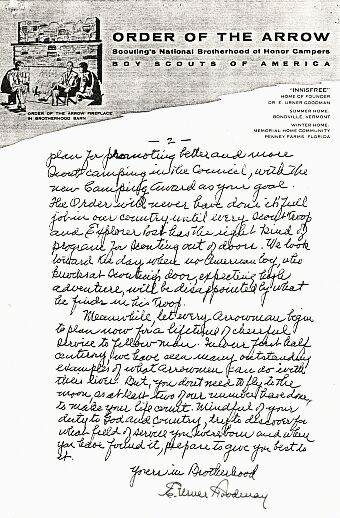 ORDER OF THE ARROW
Scouting's National Brotherhood of Honor Campers
BOY SCOUTS OF AMERICA
ORDER OF THE ARROW FIREPLACE
IN BROTHERHOOD BARN
"INNISFREE"
HOME OF FOUNDER
DR. E. URNER GOODMAN
SUMMER HOME:
BONDVILLE, VERMONT
WINTER HOME:
MEMORIAL HOME COMMUNITY
PENNEY FARMS, FLORIDA
- 2 -
plan for promoting better and more
Scout camping in the Council, with the
new Camping Award as your goal.
The Order will never have done its full
job in our country until every Scout Troop
and Explorer Post has the right kind of
program for Scouting out of doors. We look
toward the day when no American boy, who
knocks at Scouting's door, expecting high
adventure, will be disappointed by what
he finds in his Troop.
Meanwhile, let every Arrowman begin
to plan now for a lifetime of cheerful
service to fellow man. In our first half
century, we have seen many outstanding
examples of what Arrowmen can do with
their lives. But, you don't need to fly to the
moon, as at least two of our number have done,
to make your life count. Mindful of your
duty to God and country, try to discover for
what field of service you were born and when
you have found it, prepare to give your best to
it.
Yours in Brotherhood
E. Urner Goodman